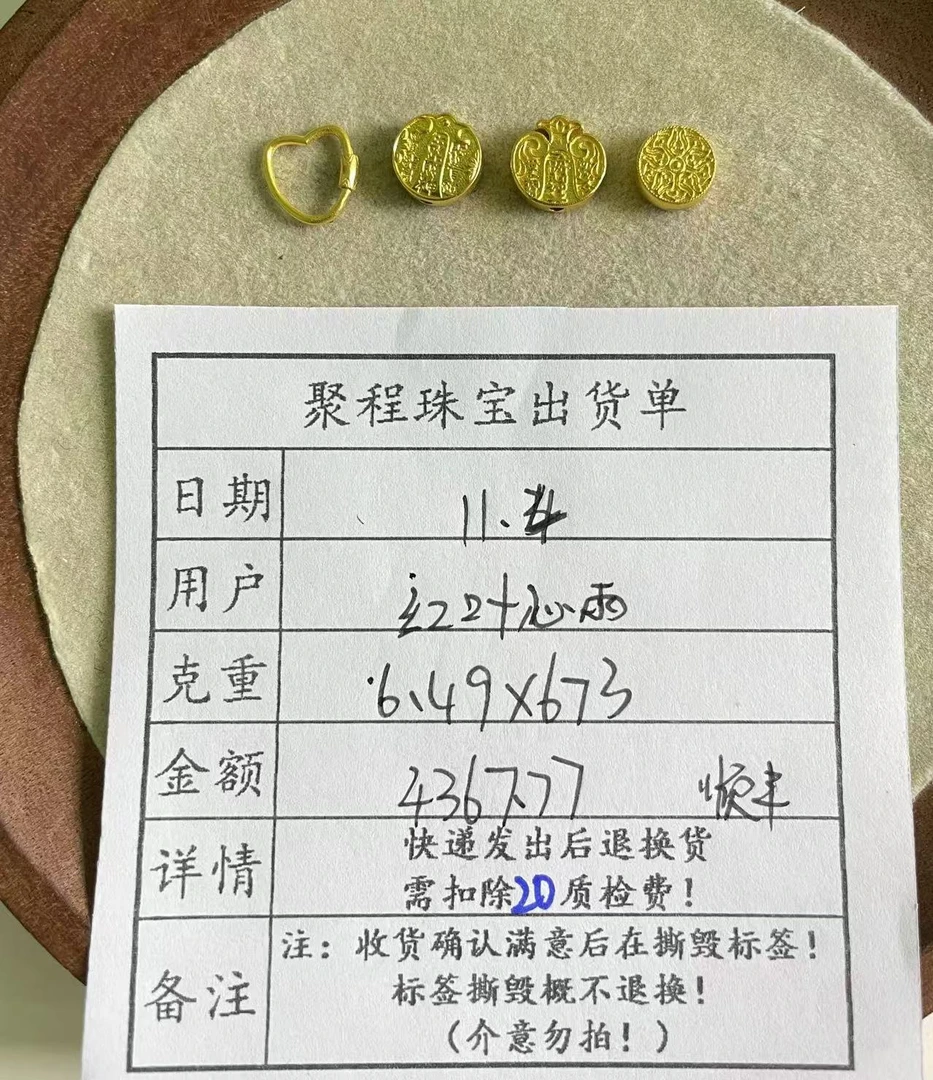 聚程珠宝出货单
日期 11.
用户 心雨
克重 6.49×673
金额 4367.77 顺丰
详情 快递发出后退换货
需扣除20质检费！
备注 注：收货确认满意后在撕毁标签！
标签撕毁概不退换！
（介意勿拍！）